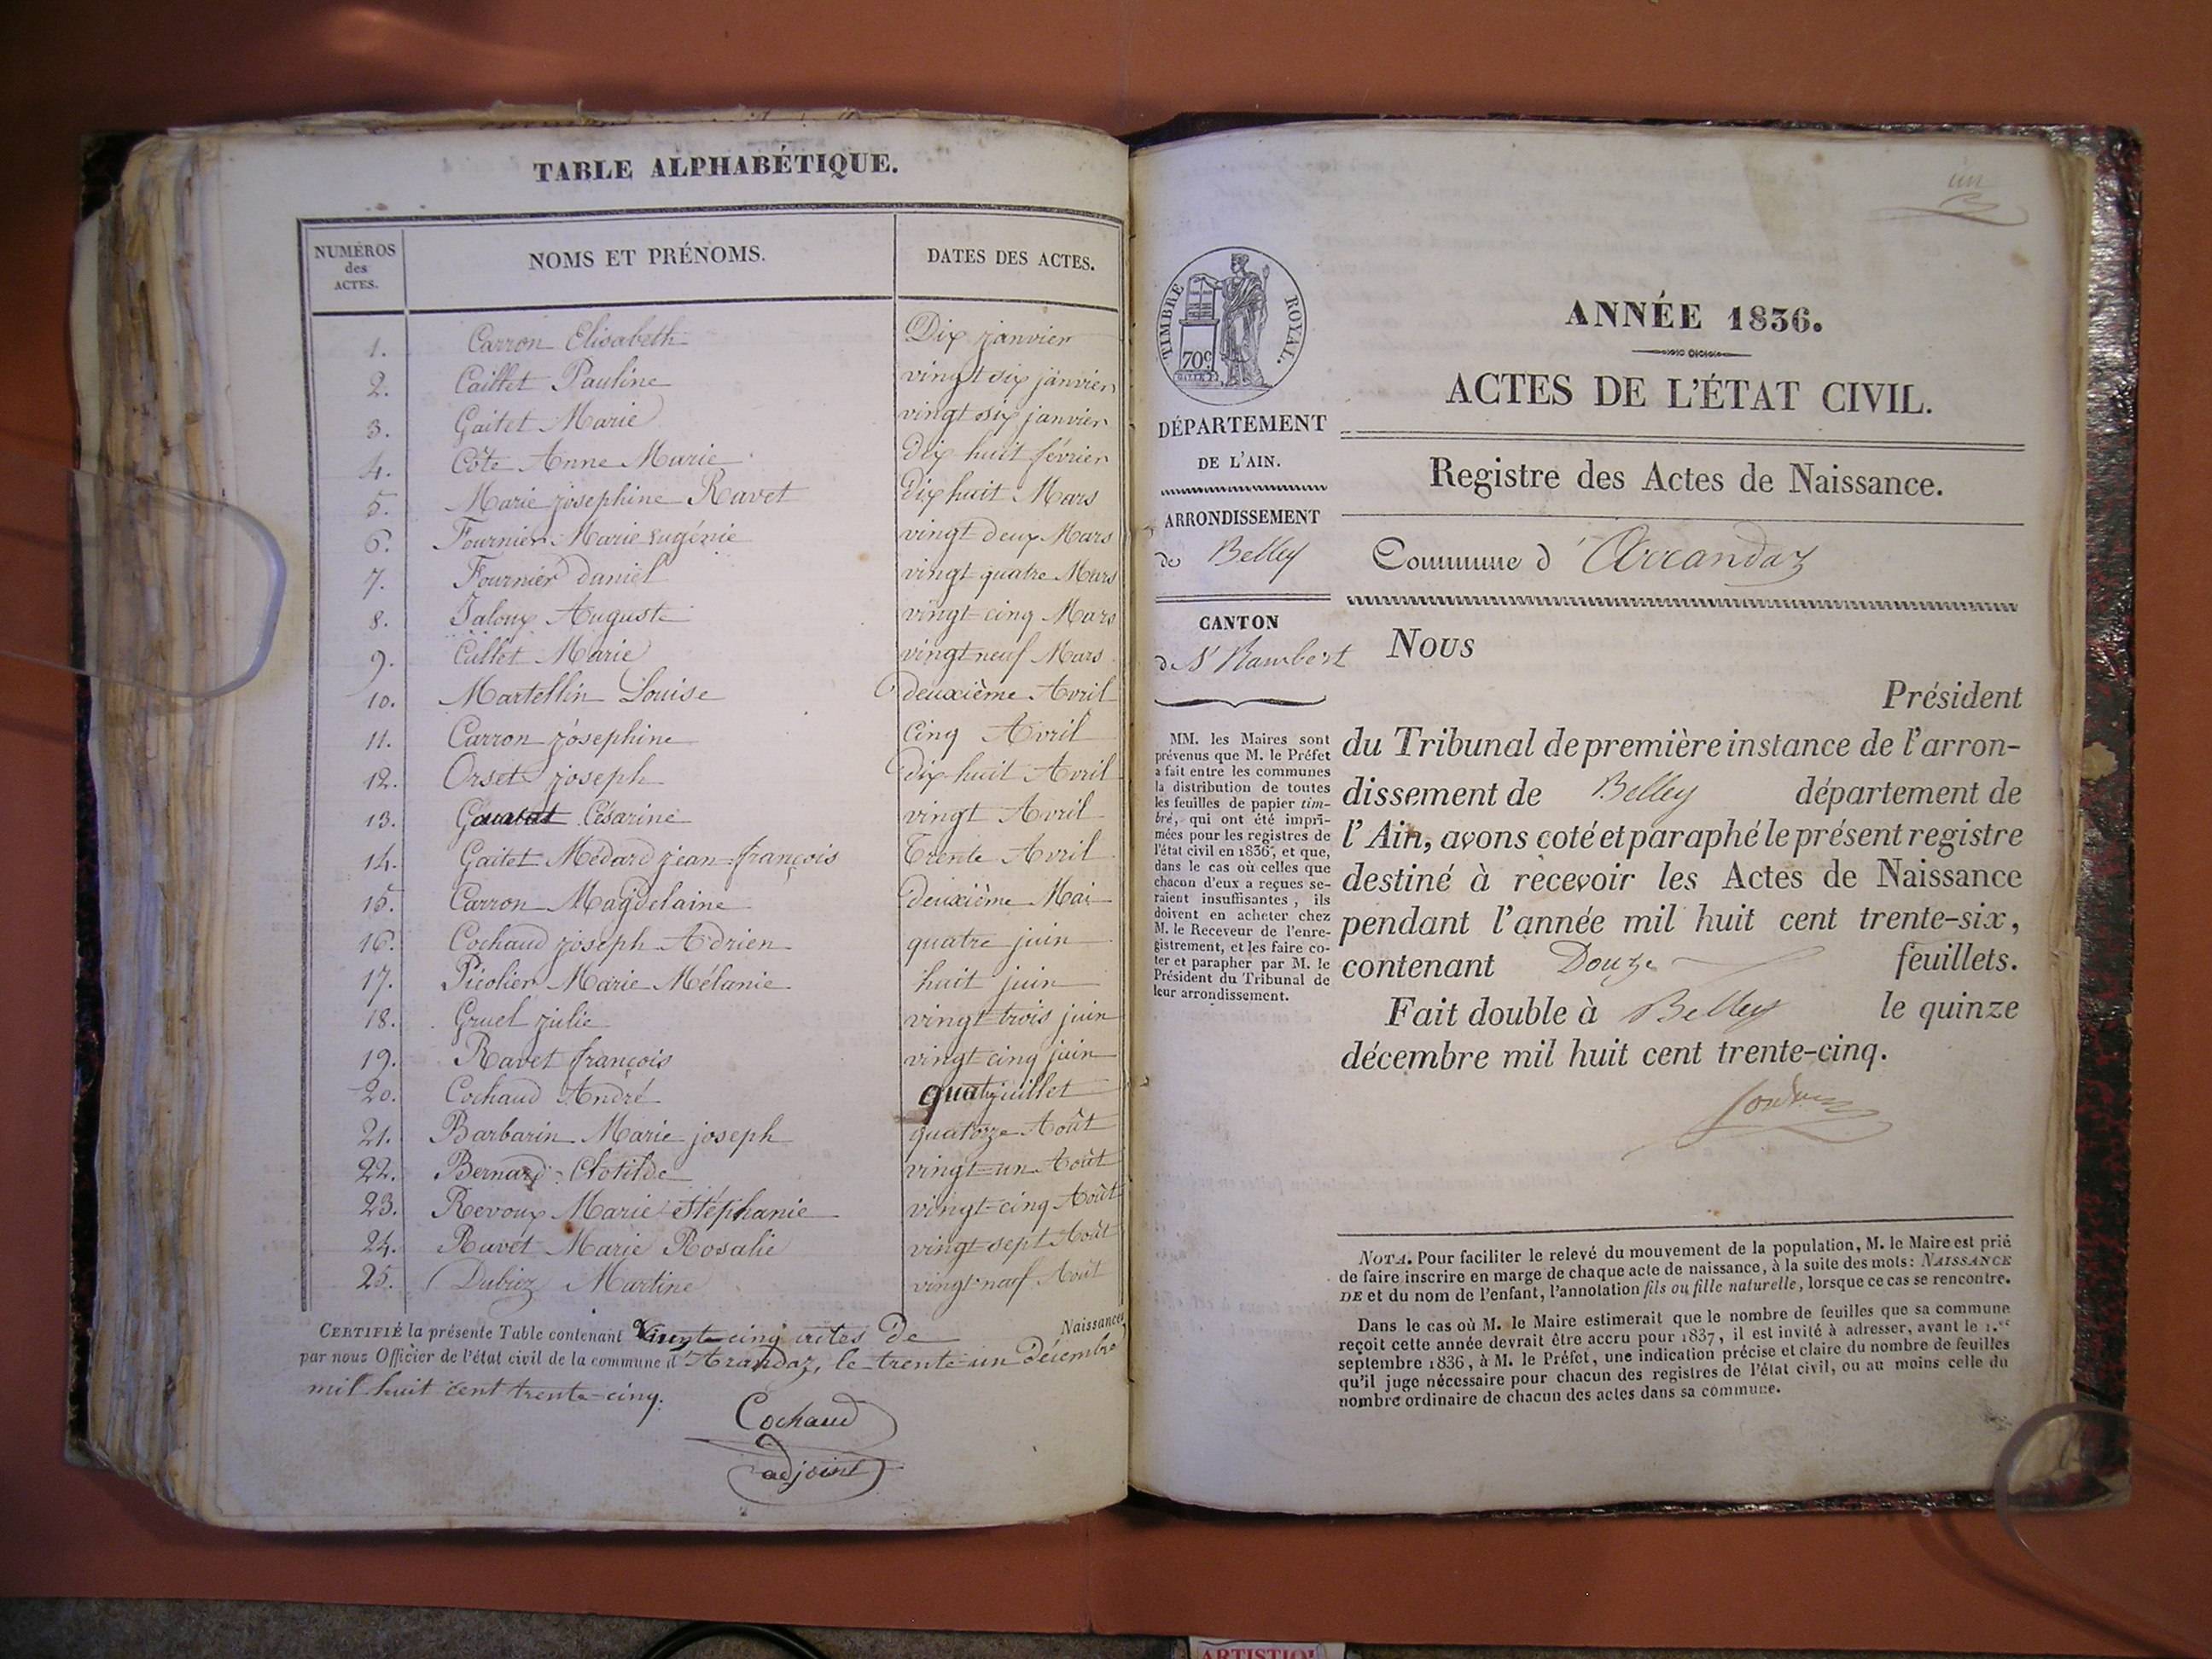 TABLE ALPHABÉTIQUE.
NUMÉROS des ACTES. NOMS ET PRÉNOMS. DATES DES ACTES.
1. Carron Elisabeth Dix janvier
2. Caillet Pauline vingt six janvier
3. Gaitet Marie vingt six janvier
4. Côte Anne Marie Dix huit février
5. Marie josephine Ravet Dix huit Mars
6. Fournier Marie Eugénie vingt deux Mars
7. Fournier daniel vingt quatre Mars
8. Jaloux Auguste vingt-cinq Mars
9. Cullet Marie vingt neuf Mars
10. Martellin Louise deuxième Avril
11. Carron josephine Cinq Avril
12. Orset joseph Dix-huit Avril
13. Césarine vingt Avril
14. Gaitet Médard jean-françois Trente Avril
15. Carron Magdelaine deuxième Mai
16. Cochaud joseph Adrien quatre juin
17. Picolier Marie Mélanie huit juin
18. Gruel julie vingt-trois juin
19. Ravet françois vingt cinq juin
20. Cochaud André juillet
21. Barbarin Marie joseph quatorze Août
22. Bernard Clotilde vingt-un Août
23. Revoux Marie Stéphanie vingt-cinq Août
24. Ravet Marie Rosalie vingt-sept Août
25. Dubiez Martine vingt-neuf Août
CERTIFIÉ la présente Table contenant Vingt-cinq actes De Naissances,
par nous Officier de l'état civil de la commune d'Arandaz, le trente-un Décembre
mil huit cent trente-cinq.
Cochaud
adjoint
un
TIMBRE ROYAL.
70c
DÉPARTEMENT
DE L'AIN.
ARRONDISSEMENT
de Belley
CANTON
de St Rambert
MM. les Maires sont
prévenus que M. le Préfet
a fait entre les communes
la distribution de toutes
les feuilles de papier tim-
bré, qui ont été impri-
mées pour les registres de
l'état civil en 1836, et que,
dans le cas où celles que
chacun d'eux a reçues se-
raient insuffisantes, ils
doivent en acheter chez
M. le Receveur de l'enre-
gistrement, et les faire co-
ter et parapher par M. le
Président du Tribunal de
leur arrondissement.
ANNÉE 1836.
ACTES DE L'ÉTAT CIVIL.
Registre des Actes de Naissance.
Commune d'Arrandaz
Nous
Président
du Tribunal de première instance de l'arron-
dissement de Belley département de
l'Ain, avons coté et paraphé le présent registre
destiné à recevoir les Actes de Naissance
pendant l'année mil huit cent trente-six,
contenant Douze feuillets.
Fait double à Belley le quinze
décembre mil huit cent trente-cinq.
NOTA. Pour faciliter le relevé du mouvement de la population, M. le Maire est prié
de faire inscrire en marge de chaque acte de naissance, à la suite des mots: NAISSANCE
DE et du nom de l'enfant, l'annotation fils ou fille naturelle, lorsque ce cas se rencontre.
Dans le cas où M. le Maire estimerait que le nombre de feuilles que sa commune
reçoit cette année devrait être accru pour 1837, il est invité à adresser, avant le 1.er
septembre 1836, à M. le Préfet, une indication précise et claire du nombre de feuilles
qu'il juge nécessaire pour chacun des registres de l'état civil, ou au moins celle du
nombre ordinaire de chacun des actes dans sa commune.